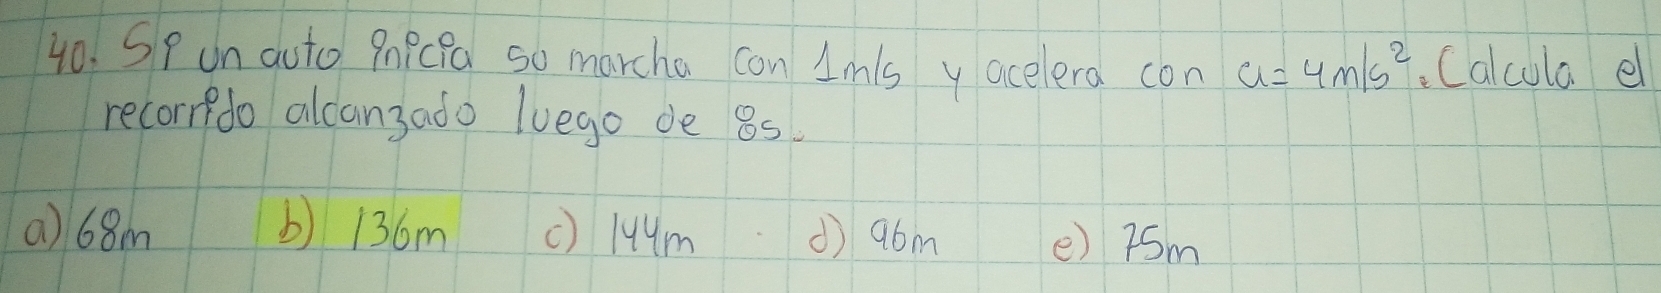 40. Si un auto inicia su marcha con 1m/s y acelera con a=4m/s². Calcula el
recorrido alcanzado luego de 8s.
a) 68m b) 136m c) 144m d) 96m e) 75m